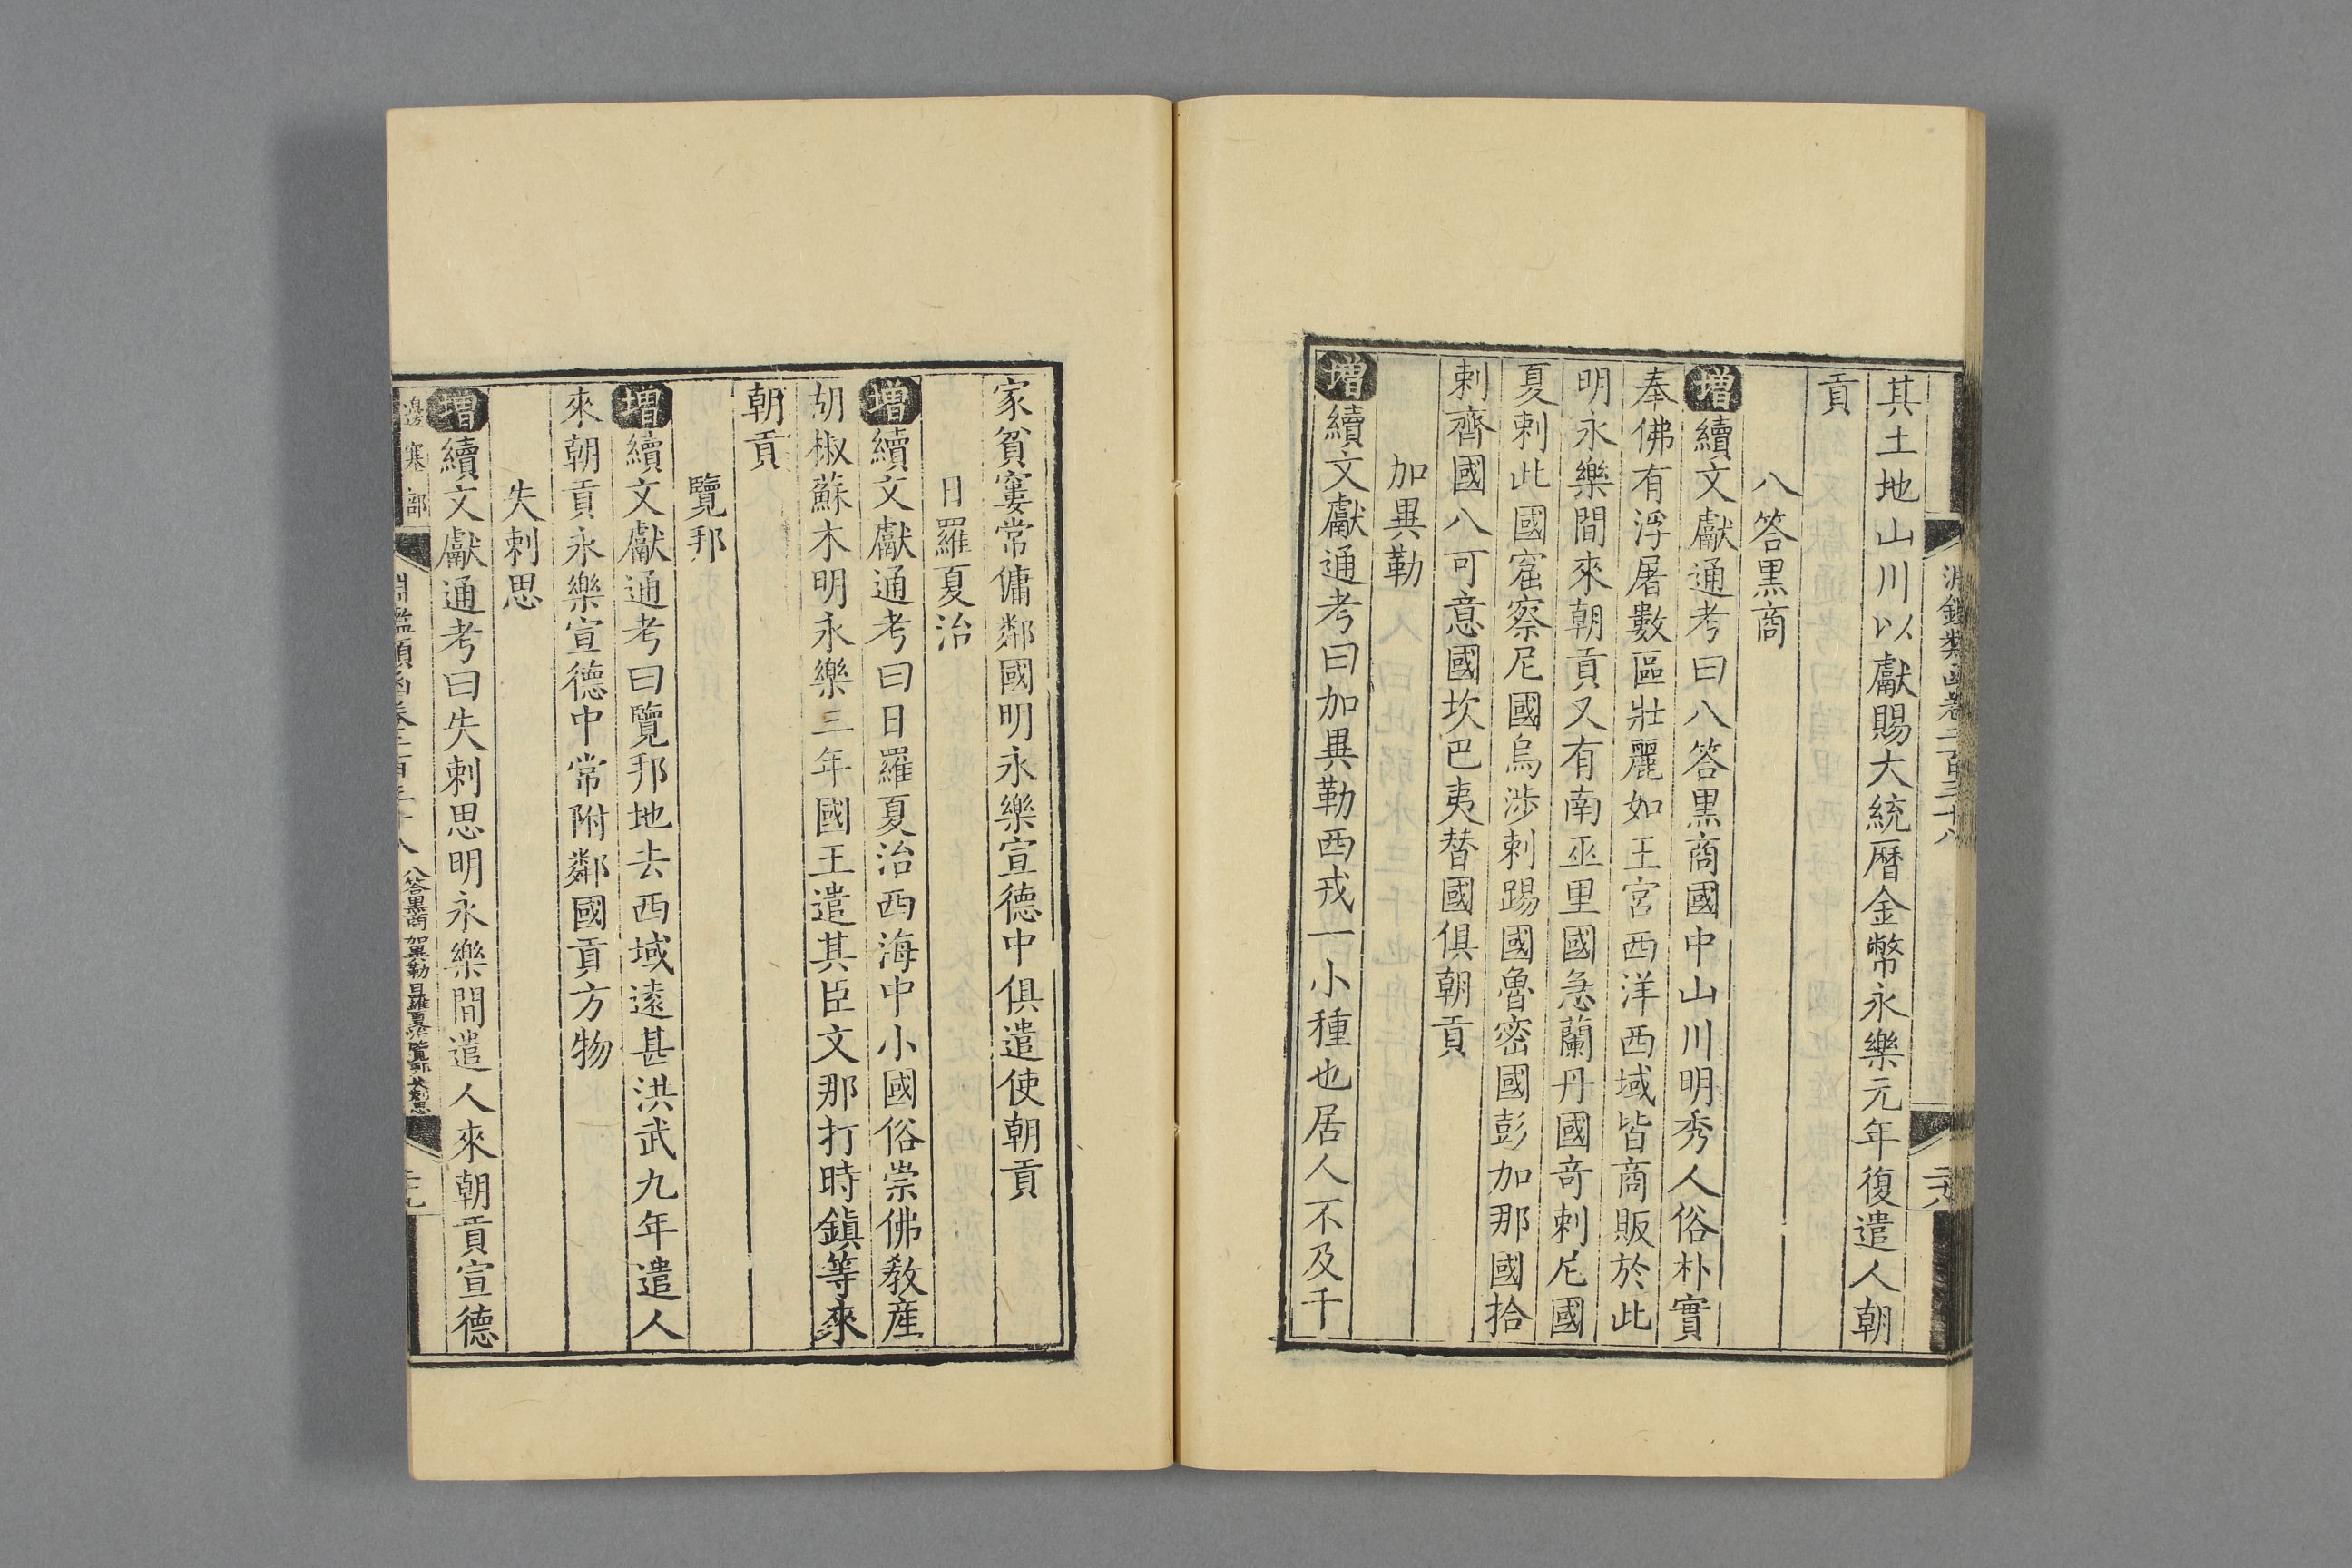 淵鑑類函卷二百三十八
二十八
其土地山川以獻賜大統曆金幣永樂元年復遣人朝
貢
八答黑商
增續文獻通考曰八答黑商國中山川明秀人俗朴實
奉佛有浮屠數區壯麗如王宮西洋西域皆商販於此
明永樂間來朝貢又有南巫里國急蘭丹國奇剌尼國
夏剌此國窟察尼國烏涉剌踢國魯密國彭加那國拾
剌齊國八可意國坎巴夷替國俱朝貢
加異勒
增續文獻通考曰加異勒西戎一小種也居人不及千
家貧窶常傭鄰國明永樂宣德中俱遣使朝貢
日羅夏治
增續文獻通考曰日羅夏治西海中小國俗崇佛教産
胡椒蘇木明永樂三年國王遣其臣文那打時鎮等來
朝貢
覽邦
增續文獻通考曰覽邦地去西域遠甚洪武九年遣人
來朝貢永樂宣德中常附鄰國貢方物
失剌思
增續文獻通考曰失剌思明永樂間遣人來朝貢宣德
邊塞部
淵鑑類函卷二百三十八
八答黑商 加異勒 日羅夏治 覽邦 失剌思
二十九